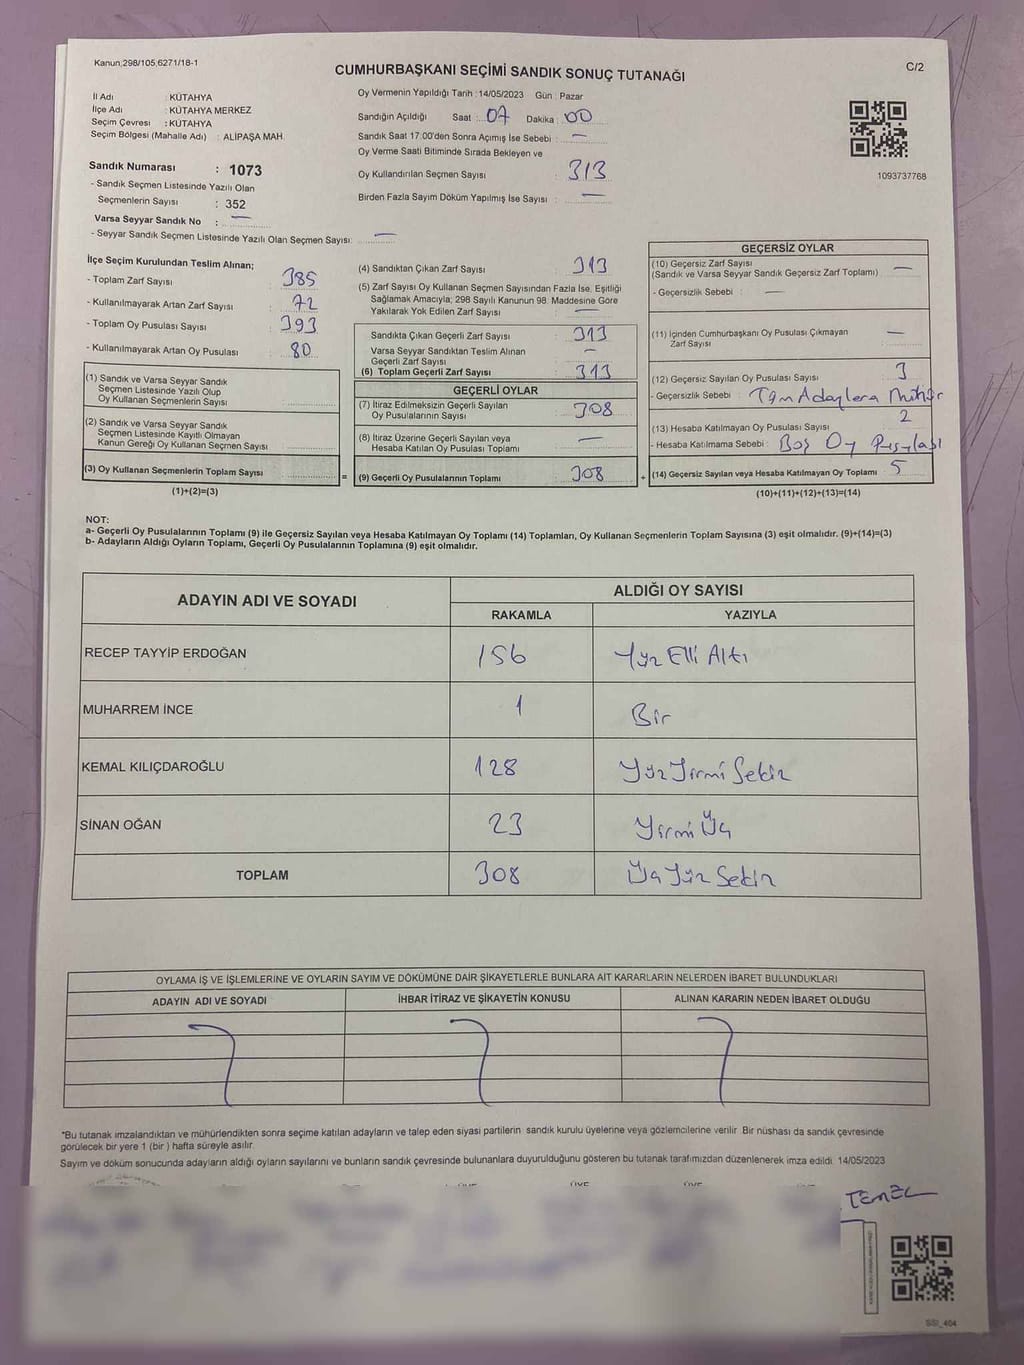 Kanun;298/105,6271/18-1
C/2
CUMHURBAŞKANI SEÇİMİ SANDIK SONUÇ TUTANAĞI
İl Adı : KÜTAHYA
İlçe Adı : KÜTAHYA MERKEZ
Seçim Çevresi : KÜTAHYA
Seçim Bölgesi (Mahalle Adı) : ALİPAŞA MAH.
Sandık Numarası : 1073
- Sandık Seçmen Listesinde Yazılı Olan
Seçmenlerin Sayısı : 352
Varsa Seyyar Sandık No : —
- Seyyar Sandık Seçmen Listesinde Yazılı Olan Seçmen Sayısı: —
Oy Vermenin Yapıldığı Tarih : 14/05/2023 Gün : Pazar
Sandığın Açıldığı Saat : 07 Dakika : 00
Sandık Saat 17:00'den Sonra Açımış İse Sebebi : —
Oy Verme Saati Bitiminde Sırada Bekleyen ve
Oy Kullandırılan Seçmen Sayısı : 313
Birden Fazla Sayım Döküm Yapılmış İse Sayısı : —
1093737768
İlçe Seçim Kurulundan Teslim Alınan;
- Toplam Zarf Sayısı : 385
- Kullanılmayarak Artan Zarf Sayısı : 72
- Toplam Oy Pusulası Sayısı : 393
- Kullanılmayarak Artan Oy Pusulası : 80
(1) Sandık ve Varsa Seyyar Sandık
Seçmen Listesinde Yazılı Olup
Oy Kullanan Seçmenlerin Sayısı
(2) Sandık ve Varsa Seyyar Sandık
Seçmen Listesinde Kayıtlı Olmayan
Kanun Gereği Oy Kullanan Seçmen Sayısı
(3) Oy Kullanan Seçmenlerin Toplam Sayısı
(1)+(2)=(3)
(4) Sandıktan Çıkan Zarf Sayısı : 313
(5) Zarf Sayısı Oy Kullanan Seçmen Sayısından Fazla İse, Eşitliği
Sağlamak Amacıyla; 298 Sayılı Kanunun 98. Maddesine Göre
Yakılarak Yok Edilen Zarf Sayısı : —
Sandıkta Çıkan Geçerli Zarf Sayısı : 313
Varsa Seyyar Sandıktan Teslim Alınan
Geçerli Zarf Sayısı : —
(6) Toplam Geçerli Zarf Sayısı : 313
GEÇERLİ OYLAR
(7) İtiraz Edilmeksizin Geçerli Sayılan
Oy Pusulasının Sayısı : 308
(8) İtiraz Üzerine Geçerli Sayılan veya
Hesaba Katılan Oy Pusulası Toplamı : —
= (9) Geçerli Oy Pusulalarının Toplamı : 308 +
GEÇERSİZ OYLAR
(10) Geçersiz Zarf Sayısı
(Sandık ve Varsa Seyyar Sandık Geçersiz Zarf Toplamı) —
- Geçersizlik Sebebi : —
(11) İçinden Cumhurbaşkanı Oy Pusulası Çıkmayan
Zarf Sayısı —
(12) Geçersiz Sayılan Oy Pusulası Sayısı : 3
- Geçersizlik Sebebi : Tüm Adaylara Mühür
(13) Hesaba Katılmayan Oy Pusulası Sayısı : 2
- Hesaba Katılmama Sebebi : Boş Oy Pusulası
(14) Geçersiz Sayılan veya Hesaba Katılmayan Oy Toplamı : 5
(10)+(11)+(12)+(13)=(14)
NOT:
a- Geçerli Oy Pusulalarının Toplamı (9) ile Geçersiz Sayılan veya Hesaba Katılmayan Oy Toplamı (14) Toplamları, Oy Kullanan Seçmenlerin Toplam Sayısına (3) eşit olmalıdır. (9)+(14)=(3)
b- Adayların Aldığı Oyların Toplamı, Geçerli Oy Pusulalarının Toplamına (9) eşit olmalıdır.
ADAYIN ADI VE SOYADI ALDIĞI OY SAYISI
RAKAMLA YAZIYLA
RECEP TAYYİP ERDOĞAN 156 Yüz Elli Altı
MUHARREM İNCE 1 Bir
KEMAL KILIÇDAROĞLU 128 Yüz Yirmi Sekiz
SİNAN OĞAN 23 Yirmi Üç
TOPLAM 308 Üç Yüz Sekiz
OYLAMA İŞ VE İŞLEMLERİNE VE OYLARIN SAYIM VE DÖKÜMÜNE DAİR ŞİKAYETLERLE BUNLARA AİT KARARLARIN NELERDEN İBARET BULUNDUKLARI
ADAYIN ADI VE SOYADI İHBAR İTİRAZ VE ŞİKAYETİN KONUSU ALINAN KARARIN NEDEN İBARET OLDUĞU
*Bu tutanak imzalandıktan ve mühürlendikten sonra seçime katılan adayların ve talep eden siyasi partilerin sandık kurulu üyelerine veya gözlemcilerine verilir. Bir nüshası da sandık çevresinde
görülecek bir yere 1 (bir) hafta süreyle asılır.
Sayım ve döküm sonucunda adayların aldığı oyların sayılarını ve bunların sandık çevresinde bulunanlara duyurulduğunu gösteren bu tutanak tarafımızdan düzenlenerek imza edildi. 14/05/2023
TEMEL
SSI_404